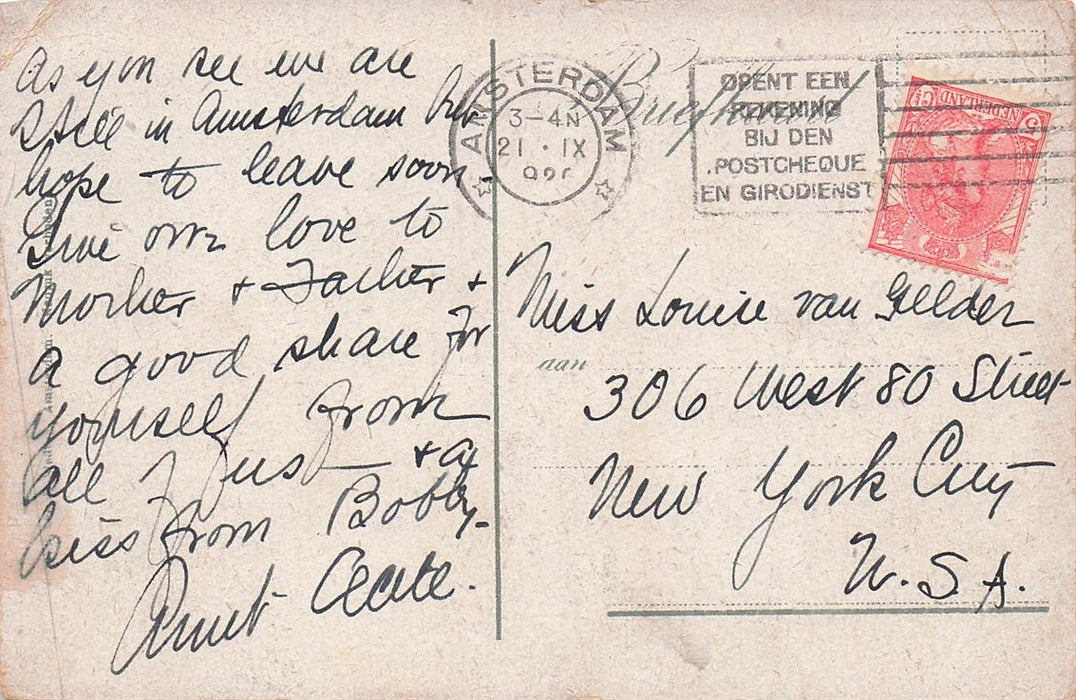 As you see we are
still in Amsterdam but
hope to leave soon.
Give our love to
Mother + Father +
a good share for
yourself from
all of us — + a
kiss from Bobby-
Aunt Cecile.
Briefkaart
AMSTERDAM
3-4N
21 · IX
192
OPENT EEN
REKENING
BIJ DEN
POSTCHEQUE
EN GIRODIENST
NEDERLAND
5 CT
Miss Louise van Gelder
aan
306 West 80 Street
New York City
U.S.A.